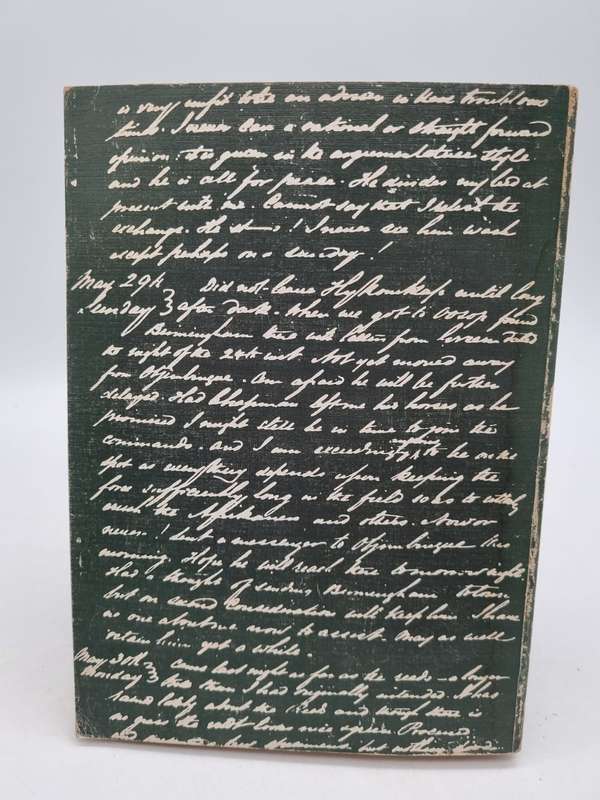 is very unfit to be an adviser in these troublous
times. I never can a rational or straight forward
opinion. too green in the argumentative style
and he is all for peace. He divides my bed at
present with me. Cannot say that I relish the
exchange. He st--s! I never see him wash
except perhaps on a Sunday!
May 29th Did not leave until long
Sunday } after dark. When we got to found
Birmingham there with letters from Green dated
the night of the 28th inst. Not yet moved away
from Otjimbingue. Am afraid he will be further
delayed. Had Chapman left me his horses as he
promised I might still be in time to join the
commando. And I am exceedingly anxious to be on the
spot as everything depends upon keeping the
force sufficiently long in the field so as to utterly
crush the Afrikaners and others. Now or
never! Sent a messenger to Otjimbingue this
morning. Hope he will reach there tomorrow night
Had a thought of sending Birmingham
but on second consideration will keep him. I have
as one about me now to assist. May as well
retain him yet a while.
May 30th } Came last night as far as the reeds - a longer
Monday } than I had originally intended. It has
rained lately about the and though there is
no grass the veldt looks nice again. Procured
but nothing